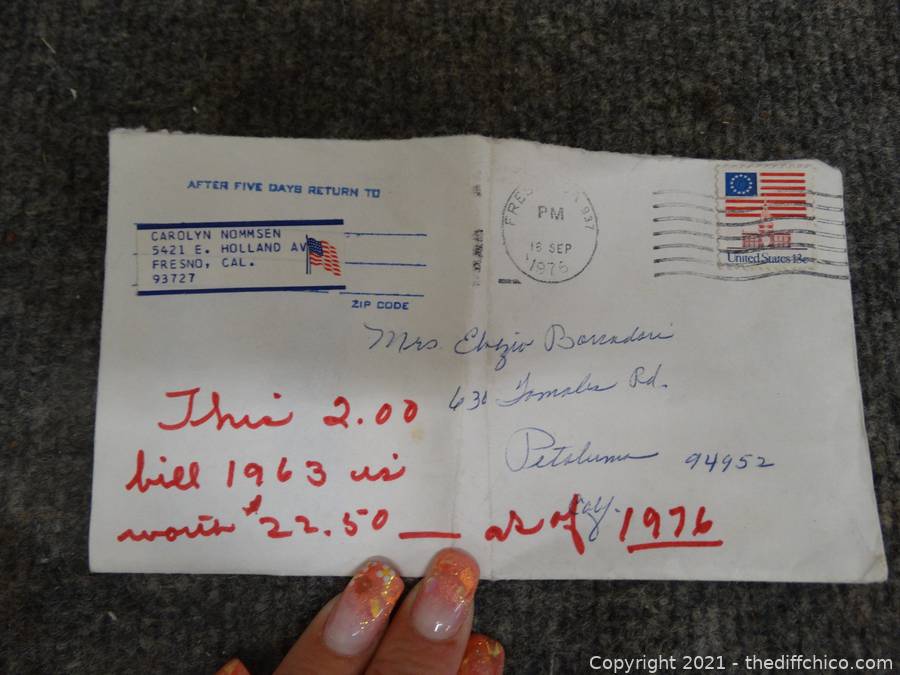 AFTER FIVE DAYS RETURN TO
CAROLYN NOMMSEN
5421 E. HOLLAND AV
FRESNO, CAL.
93727
ZIP CODE
FRES
937
PM
16 SEP
1976
United States 13c
Mrs.
Rd.
Petaluma 94952
This 2.00
bill 1963 is
worth $22.50 — as of 1976
Copyright 2021 - thediffchico.com